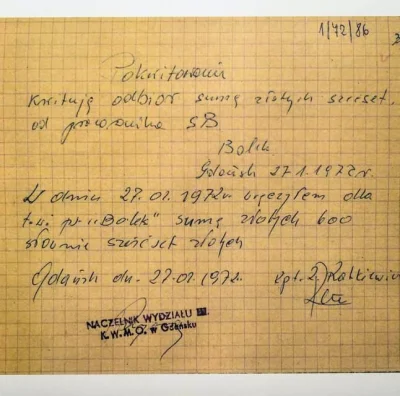 1/72/86
Pokwitowanie
Kwituję odbiór sumę złotych sześset
od pracownika SB
Bolek
Gdańsk 27.1.1972 r
W dniu 27.01.1972 wręczyłem dla
t.w. ps "Bolek" sumę złotych 600
słownie sześćset złotych
Gdańsk dn. 27.01.1972.
kpt. Z. Ratkiewicz
NACZELNIK WYDZIAŁU III
K.W.M.O. w Gdańsku